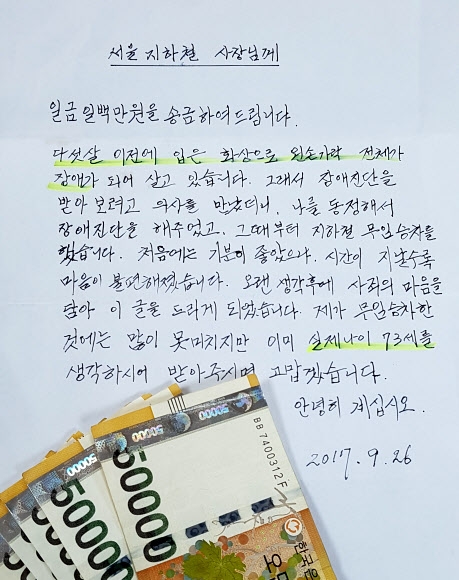 서울 지하철 사장님께
일금 일백만원을 송금하여드립니다.
다섯살 이전에 입은 화상으로 왼손가락 전체가
장애가 되어 살고 있습니다. 그래서 장애진단을
받아 보려고 의사를 만났더니, 나를 동정해서
장애진단을 해주었고, 그때부터 지하철 무임승차를
했습니다. 처음에는 기분이 좋았으나, 시간이 지날수록
마음이 불편해졌습니다. 오랜 생각후에 사죄의 마음을
담아 이 글을 드리게 되었습니다. 제가 무임승차한
것에는 많이 못미치지만 이미 실제나이 73세를
생각하시어 받아주시면 고맙겠습니다.
안녕히 계십시오.
2017. 9. 26
50000
50000
50000
50000
50000
50000
BB 7400312 F
한국은
오